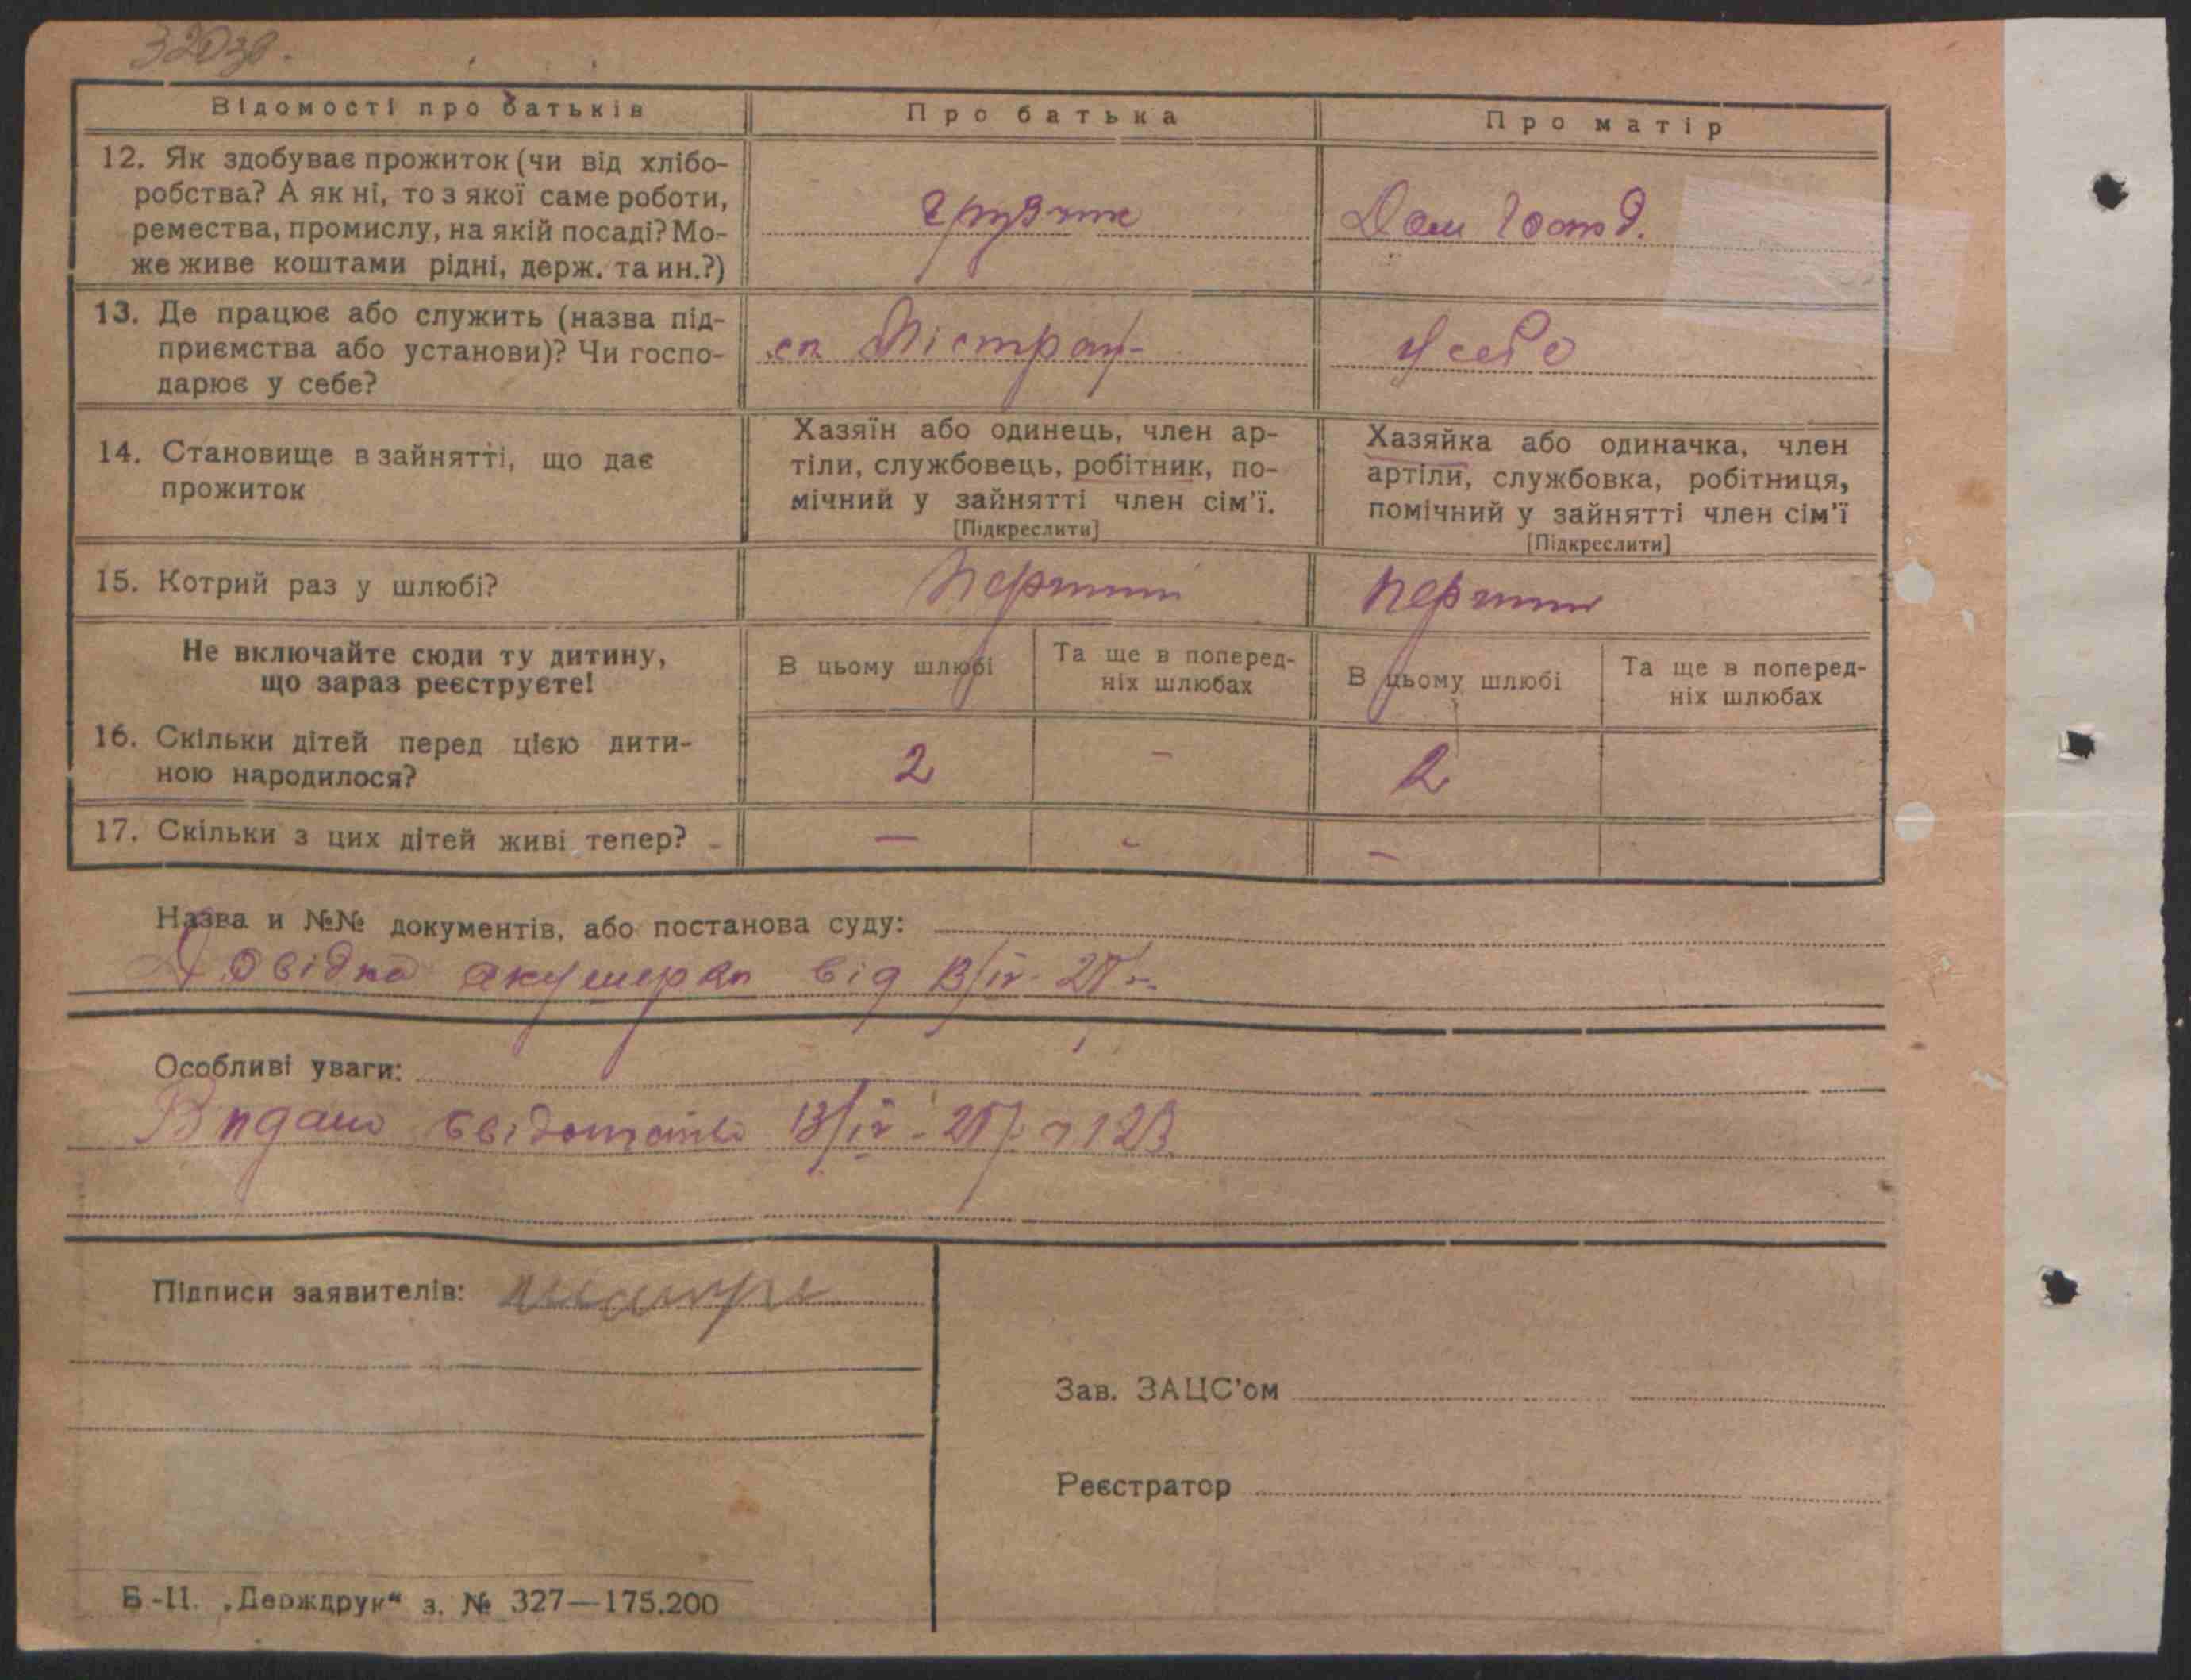 320зв.
Відомості про батьків
Про батька
Про матір
12. Як здобуває прожиток (чи від хлібо-
робства? А як ні, то з якої саме роботи,
ремества, промислу, на якій посаді? Мо-
же живе коштами рідні, держ. та ин.?)
грузчик
Дом господ.
13. Де працює або служить (назва під-
приємства або установи)? Чи госпо-
дарює у себе?
У себе
14. Становище в зайнятті, що дає
прожиток
Хазяїн або одинець, член ар-
тіли, службовець, робітник, по-
мічний у зайнятті член сім'ї.
[Підкреслити]
Хазяйка або одиначка, член
артіли, службовка, робітниця,
помічний у зайнятті член сім'ї
[Підкреслити]
15. Котрий раз у шлюбі?
перший
перший
Не включайте сюди ту дитину,
що зараз реєструєте!
В цьому шлюбі
Та ще в поперед-
ніх шлюбах
В цьому шлюбі
Та ще в поперед-
ніх шлюбах
16. Скільки дітей перед цією дити-
ною народилося?
2
-
2
17. Скільки з цих дітей живі тепер?
—
-
-
Назва и №№ документів, або постанова суду:
Довідка акушерки від 13/IV-
Особливі уваги:
Видано свідоцтво 13/IV- 123
Підписи заявителів:
Зав. ЗАЦС'ом
Реєстратор
Б-11. „Держдрук“ з. № 327—175.200